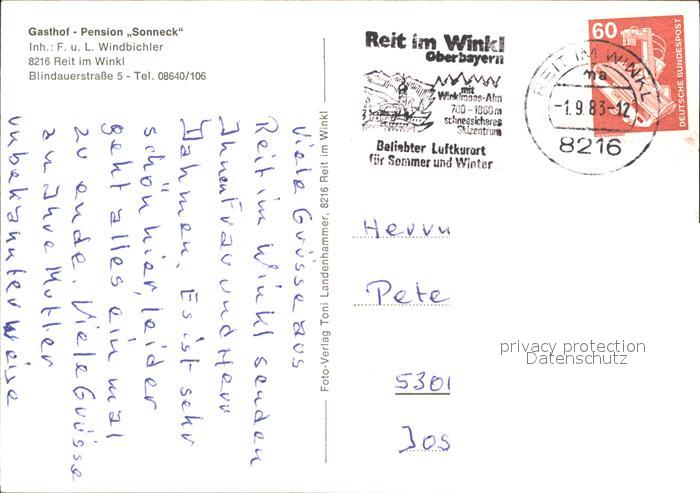 Gasthof - Pension „Sonneck“
Inh.: F. u. L. Windbichler
8216 Reit im Winkl
Blindauerstraße 5 - Tel. 08640/106
Viele Grüsse aus
Reit im Winkl senden
Ihnen Frau und Herr
Dahmen. Es ist sehr
schön hier, leider
geht alles ein mal
zu ende. Viele Grüsse
an Ihre Mutter
unbekannter weise
Foto-Verlag Toni Landenhammer, 8216 Reit im Winkl
Reit im Winkl
Oberbayern
mit
Winklmoos-Alm
700-1800m
schneesicheres
Skizentrum
Beliebter Luftkurort
für Sommer und Winter
REIT IM WINKL
ma
-1.9.83-12
8216
60
DEUTSCHE BUNDESPOST
Herrn
Pete
privacy protection
Datenschutz
5301